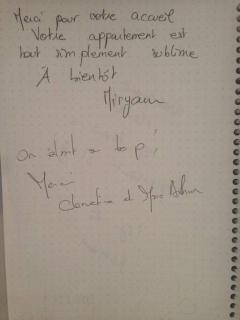 Merci pour votre accueil
Votre appartement est
tout simplement sublime
À bientôt
Miryam
On était au top!
Merci
et